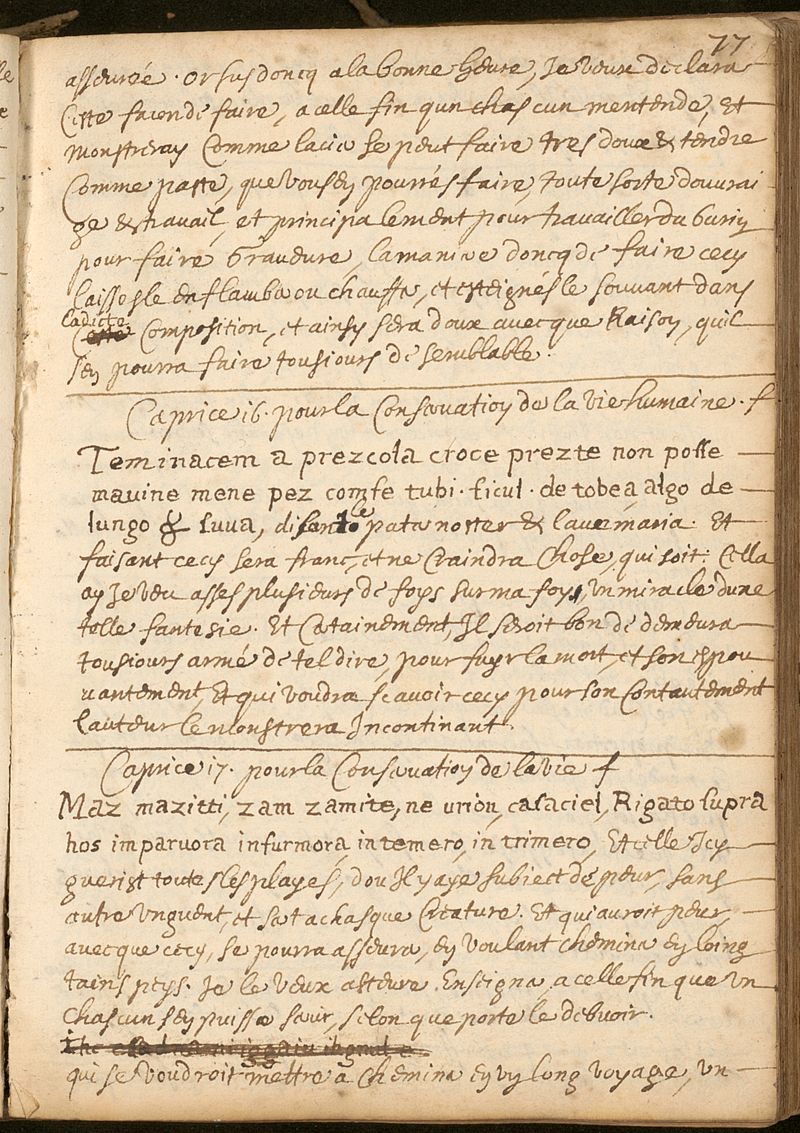 77
asseurée. Or sus doncq a la bonne heure, Je veux declarer
Ceste facon de faire, acelle fin qun chascun mentende, Et
monstreray Comme lacier se peut faire tres doux & tendre
Comme paste, que vous en pourrés faire, toute sorte douvrai
ge & travail, et principalement pour travailler du burin
pour faire Graveure, la maniere doncq de faire cecy
laissés le enflamber ou chauffer, et esteignés le souvant dans
Ladicte
Ceste Composition, et ainsy sera doux avecque Raison, quil
sen pourra faire tousiours de semblable.
Caprice 16. pour la Conservation de la vie humaine. f
Teminacem a prezcola croce prezte non posse
mauine mene pez comfe tubi. ficul. de tobea, algo de
lungo & suua, disant le pater noster & lave maria. Et
faisant cecy sera franc, et ne Craindra Chose, qui soit. Cella
ay Je veu asses plusieurs de foys sur ma foy, un miracle dune
telle fantesie. Et Certainement, Il seroit bon de demeurer
tousiours armé de tel dire, pour fuyr la mort, et son espou
vantement, Et qui voudra scavoir cecy pour son Contantement
lauteur le monstrera Incontinant.
Caprice 17. pour la Conservation de la vie f
Maz mazitti, zam zamite, ne urion, casaciel, Rigato supra
hos imparuora infurmora, intemero, in trimero, Et celle Icy
guerist toutes les playes, dou Il y aye subiect de peur, sans
autre unguent, et sert a chasque Creature. Et qui auroit peur,
avecque cecy, se pourra asseurer, en voulant cheminer en loing
tains peys. Je le veux asteure Enseigner, acelle fin que un
Chascun sen puisse servir, selon que porte le debvoir.
qui se voudroit mettre a Cheminer en un long voyage, un